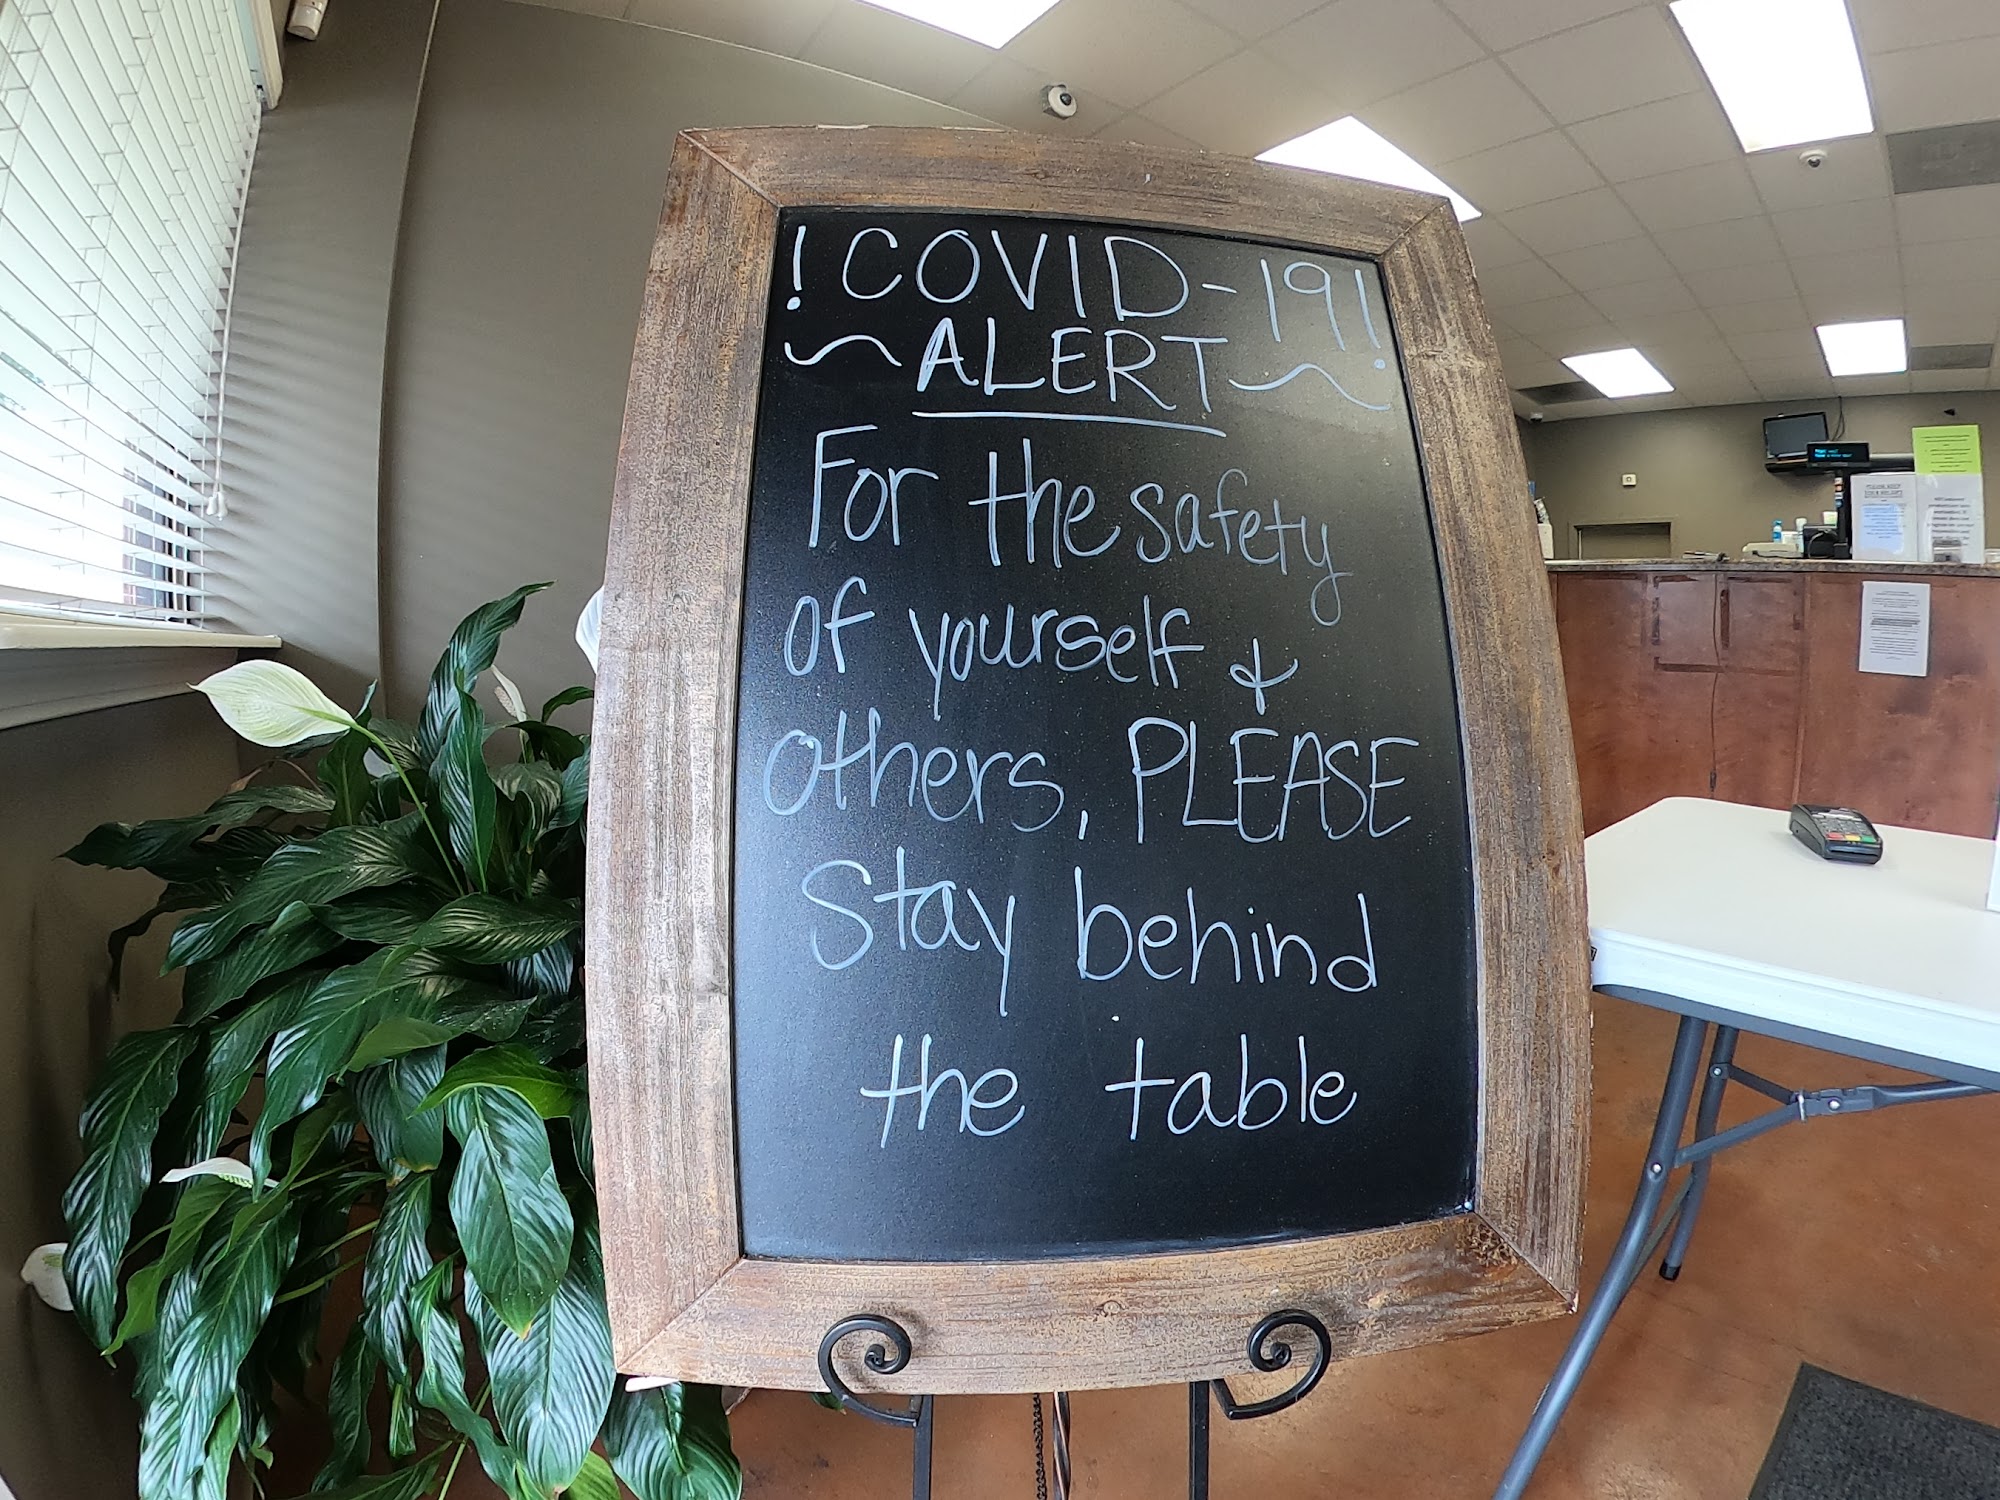 ! COVID-19!
~ ALERT ~
For the safety
of yourself &
others, PLEASE
Stay behind
the table